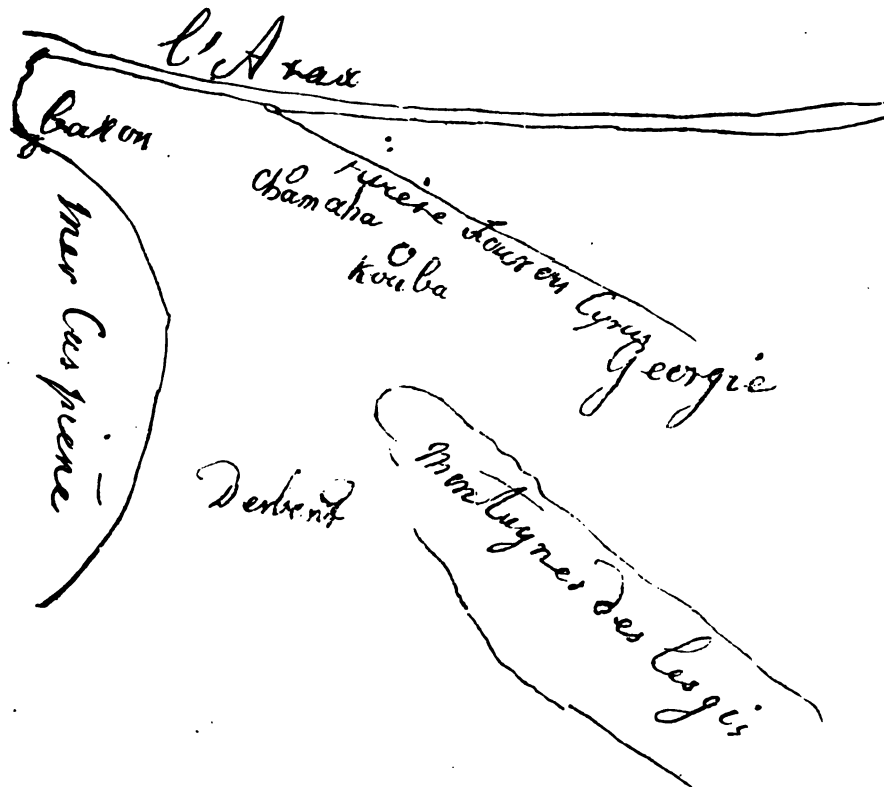 l'Arax
bakou
Mer Caspiene
rivière Kour ou Cyrus
Chamaha
Kouba
Georgie
Derbent
Montagnes des lesgis